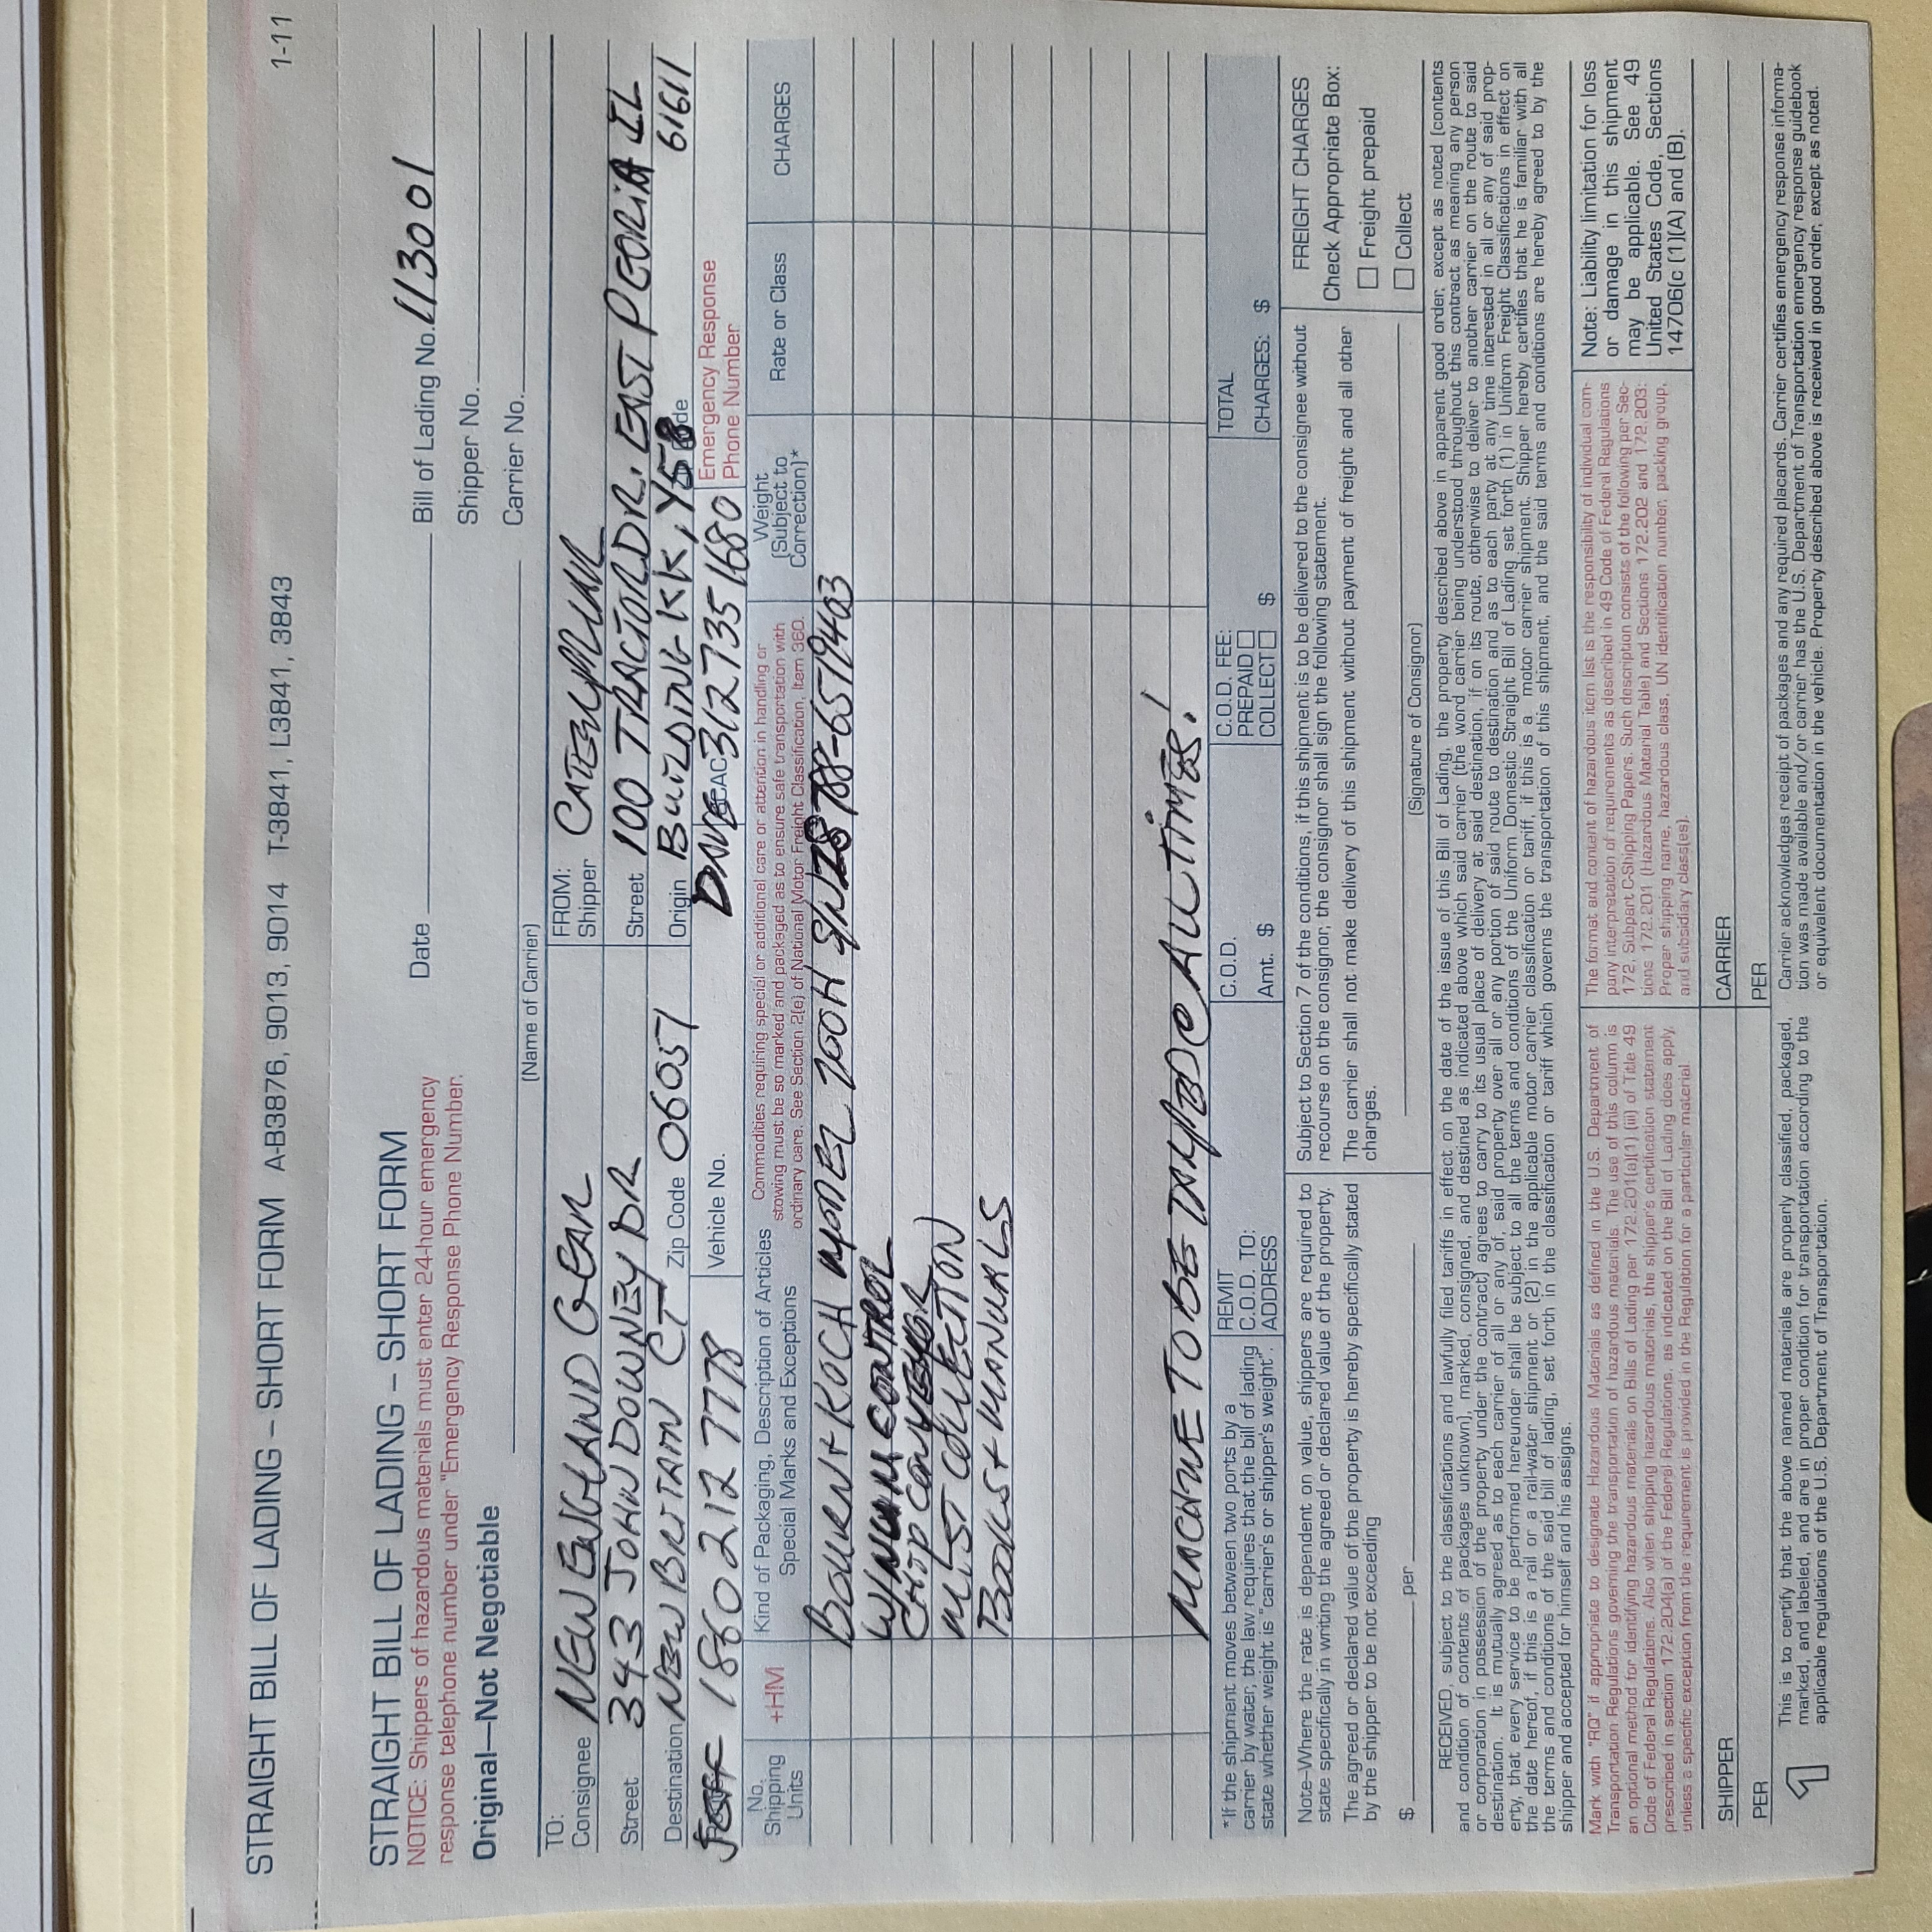 STRAIGHT BILL OF LADING – SHORT FORM A-B3876, 9013, 9014 T-3841, L3841, 3843 1-11
STRAIGHT BILL OF LADING – SHORT FORM
NOTICE: Shippers of hazardous materials must enter 24-hour emergency
response telephone number under "Emergency Response Phone Number.
Original—Not Negotiable
Date
Bill of Lading No. 113001
Shipper No.
Carrier No.
(Name of Carrier)
TO:
Consignee NEW ENGLAND GEAR
Street 343 JOHN DOWNEY DR
Destination NEW BRITAIN CT Zip Code 06051
JEFF 1 860 212 7778 Vehicle No.
FROM:
Shipper CATERPILLAR
Street 100 TRACTOR DR. EAST PEORIA IL
61611
Origin BUILDING KK, Y58
DAVE 312 735 1680
Emergency Response
Phone Number
No.
Shipping
Units
+HM
Kind of Packaging, Description of Articles
Special Marks and Exceptions
Commodities requiring special or additional care or attention in handling or
stowing must be so marked and packaged as to ensure safe transportation with
ordinary care. See Section 2(e) of National Motor Freight Classification, Item 360.
Weight
(Subject to
Correction)*
Rate or Class
CHARGES
BOURN + KOCH MODEL 200H S/N 28788-6519403
CONTROL
CHIP CONVEYOR
MIST COLLECTION
BOOKS + MANUALS
MACHINE TO BE TARPED @ ALL TIMES!
*If the shipment moves between two ports by a
carrier by water, the law requires that the bill of lading
state whether weight is "carrier's or shipper's weight".
REMIT
C.O.D. TO:
ADDRESS
C.O.D.
Amt. $
C.O.D. FEE:
PREPAID
COLLECT $
TOTAL
CHARGES: $
Note–Where the rate is dependent on value, shippers are required to
state specifically in writing the agreed or declared value of the property.
The agreed or declared value of the property is hereby specifically stated
by the shipper to be not exceeding
$ per
Subject to Section 7 of the conditions, if this shipment is to be delivered to the consignee without
recourse on the consignor, the consignor shall sign the following statement.
The carrier shall not make delivery of this shipment without payment of freight and all other
charges.
(Signature of Consignor)
FREIGHT CHARGES
Check Appropriate Box:
Freight prepaid
Collect
RECEIVED, subject to the classifications and lawfully filed tariffs in effect on the date of the issue of this Bill of Lading, the property described above in apparent good order, except as noted (contents
and condition of contents of packages unknown), marked, consigned, and destined as indicated above which said carrier (the word carrier being understood throughout this contract as meaning any person
or corporation in possession of the property under the contract) agrees to carry to its usual place of delivery at said destination, if on its route, otherwise to deliver to another carrier on the route to said
destination. It is mutually agreed as to each carrier of all or any of, said property over all or any portion of said route to destination and as to each party at any time interested in all or any of said prop-
erty, that every service to be performed hereunder shall be subject to all the terms and conditions of the Uniform Domestic Straight Bill of Lading set forth (1) in Uniform Freight Classifications in effect on
the date hereof, if this is a rail or a rail-water shipment or (2) in the applicable motor carrier classification or tariff, if this is a motor carrier shipment. Shipper hereby certifies that he is familiar with all
the terms and conditions of the said bill of lading, set forth in the classification or tariff which governs the transportation of this shipment, and the said terms and conditions are hereby agreed to by the
shipper and accepted for himself and his assigns.
Mark with "RQ" if appropriate to designate Hazardous Materials as defined in the U.S. Department of
Transportation Regulations governing the transportation of hazardous materials. The use of this column is
an optional method for identifying hazardous materials on Bills of Lading per 172.201(a)(1) (iii) of Title 49
Code of Federal Regulations. Also when shipping hazardous materials, the shipper's certification statement
prescribed in section 172.204(a) of the Federal Regulations, as indicated on the Bill of Lading does apply,
unless a specific exception from the requirement is provided in the Regulation for a particular material
The format and content of hazardous item list is the responsibility of individual com-
pany interpretation of requirements as described in 49 Code of Federal Regulations
172, Subpart C-Shipping Papers. Such description consists of the following per Sec-
tions 172.201 (Hazardous Material Table) and Sections 172.202 and 172.203:
Proper shipping name, hazardous class, UN identification number, packing group,
and subsidiary class(es).
Note: Liability limitation for loss
or damage in this shipment
may be applicable. See 49
United States Code, Sections
14706(c (1)(A) and (B).
SHIPPER
CARRIER
PER
PER
1
This is to certify that the above named materials are properly classified, packaged,
marked, and labeled, and are in proper condition for transportation according to the
applicable regulations of the U.S. Department of Transportation.
Carrier acknowledges receipt of packages and any required placards. Carrier certifies emergency response informa-
tion was made available and/or carrier has the U.S. Department of Transportation emergency response guidebook
or equivalent documentation in the vehicle. Property described above is received in good order, except as noted.